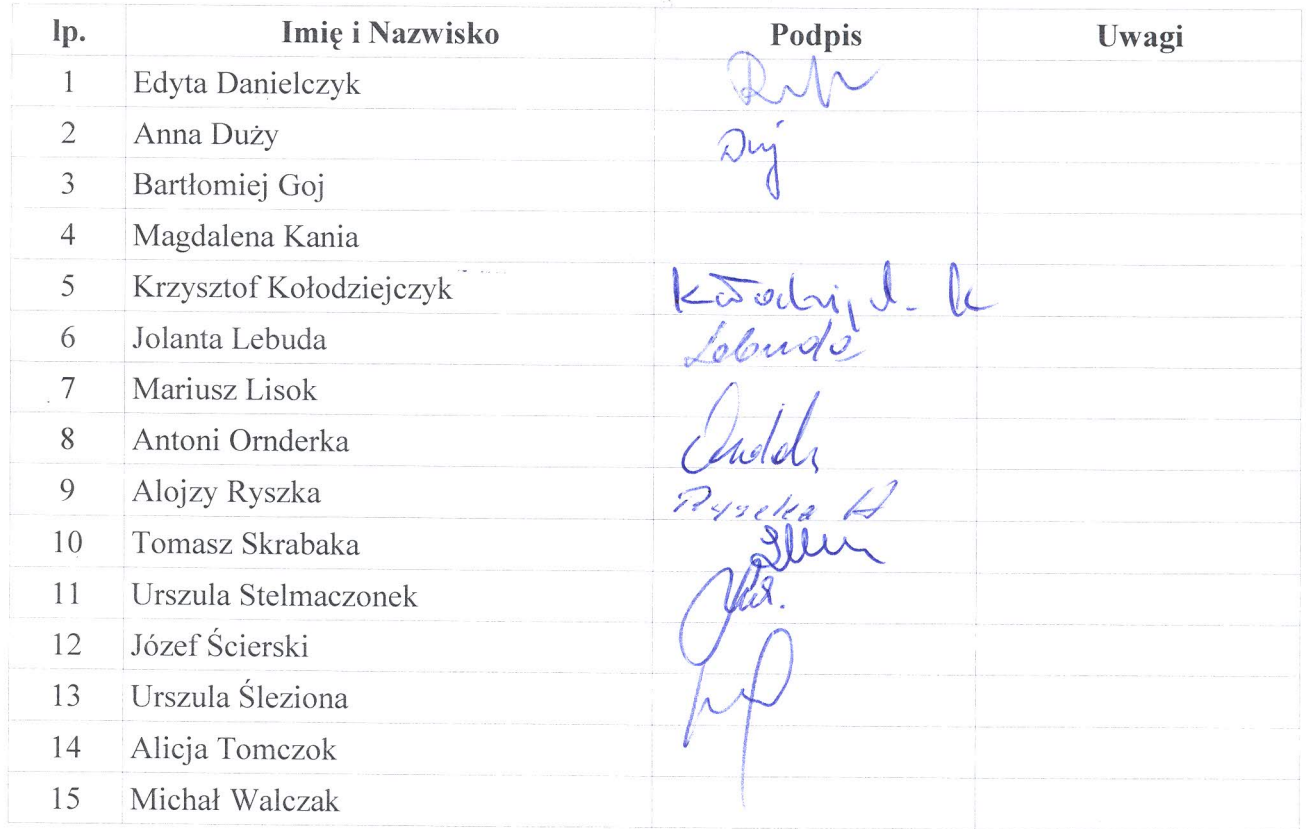 lp. Imię i Nazwisko Podpis Uwagi
1 Edyta Danielczyk
2 Anna Duży
3 Bartłomiej Goj
4 Magdalena Kania
5 Krzysztof Kołodziejczyk
6 Jolanta Lebuda Lebuda
7 Mariusz Lisok
8 Antoni Ornderka
9 Alojzy Ryszka Ryszka A
10 Tomasz Skrabaka
11 Urszula Stelmaczonek
12 Józef Ścierski
13 Urszula Śleziona
14 Alicja Tomczok
15 Michał Walczak